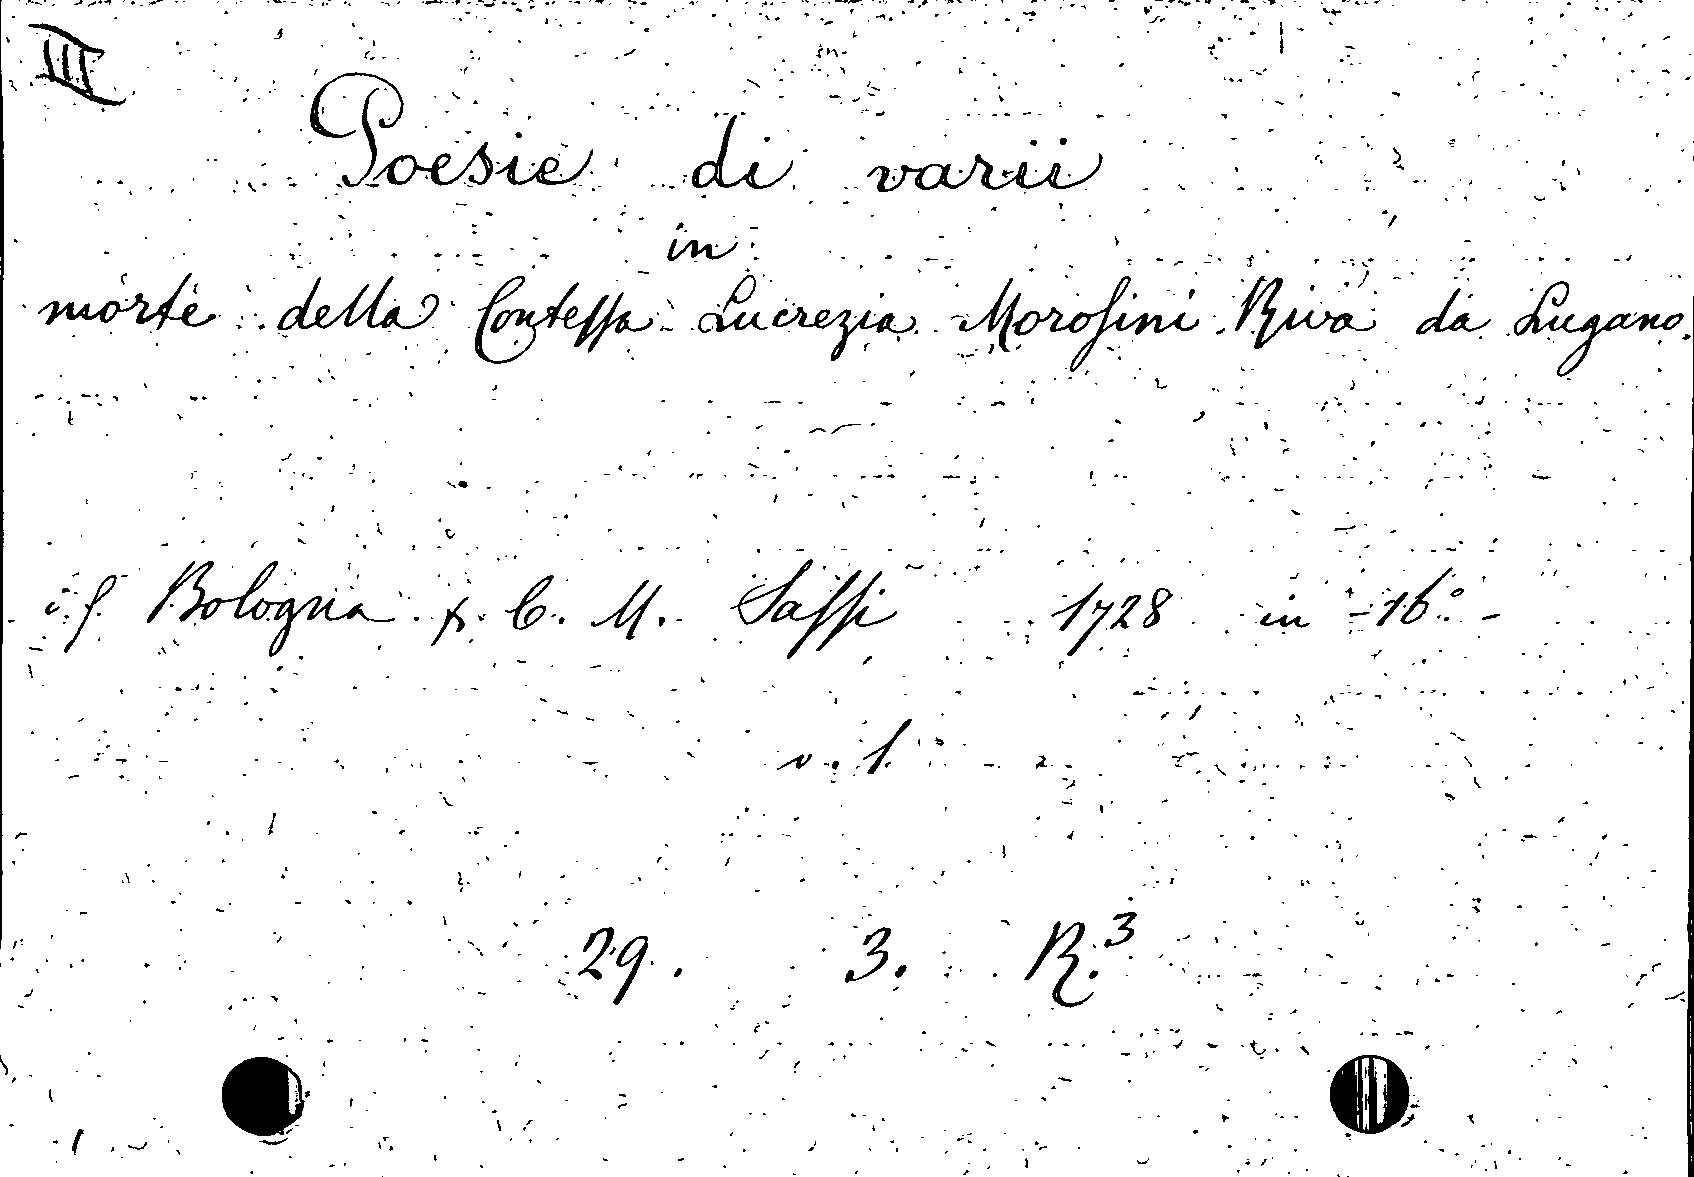 III
Poesie di varii
in
morte della Contessa Lucrezia Morosini Riva da Lugano.
Bologna C. M. Sassi 1728 in -16° -
v. 1.
29. 3. R.³